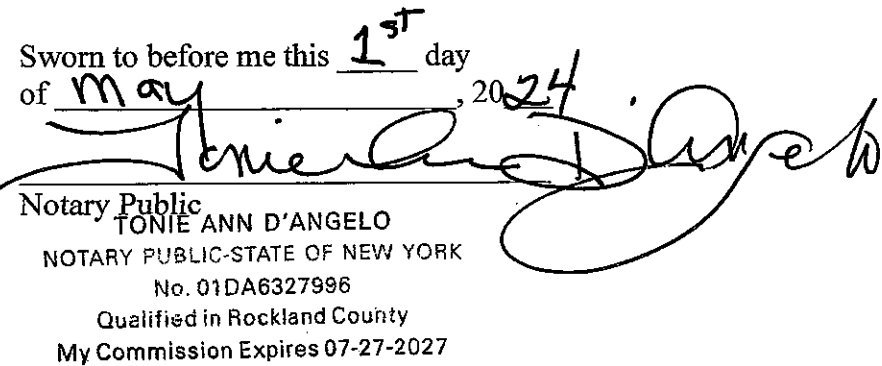 Sworn to before me this 1st day
of May, 2024
Tonie Ann D'Angelo
Notary Public
TONIE ANN D'ANGELO
NOTARY PUBLIC-STATE OF NEW YORK
No. 01DA6327996
Qualified in Rockland County
My Commission Expires 07-27-2027